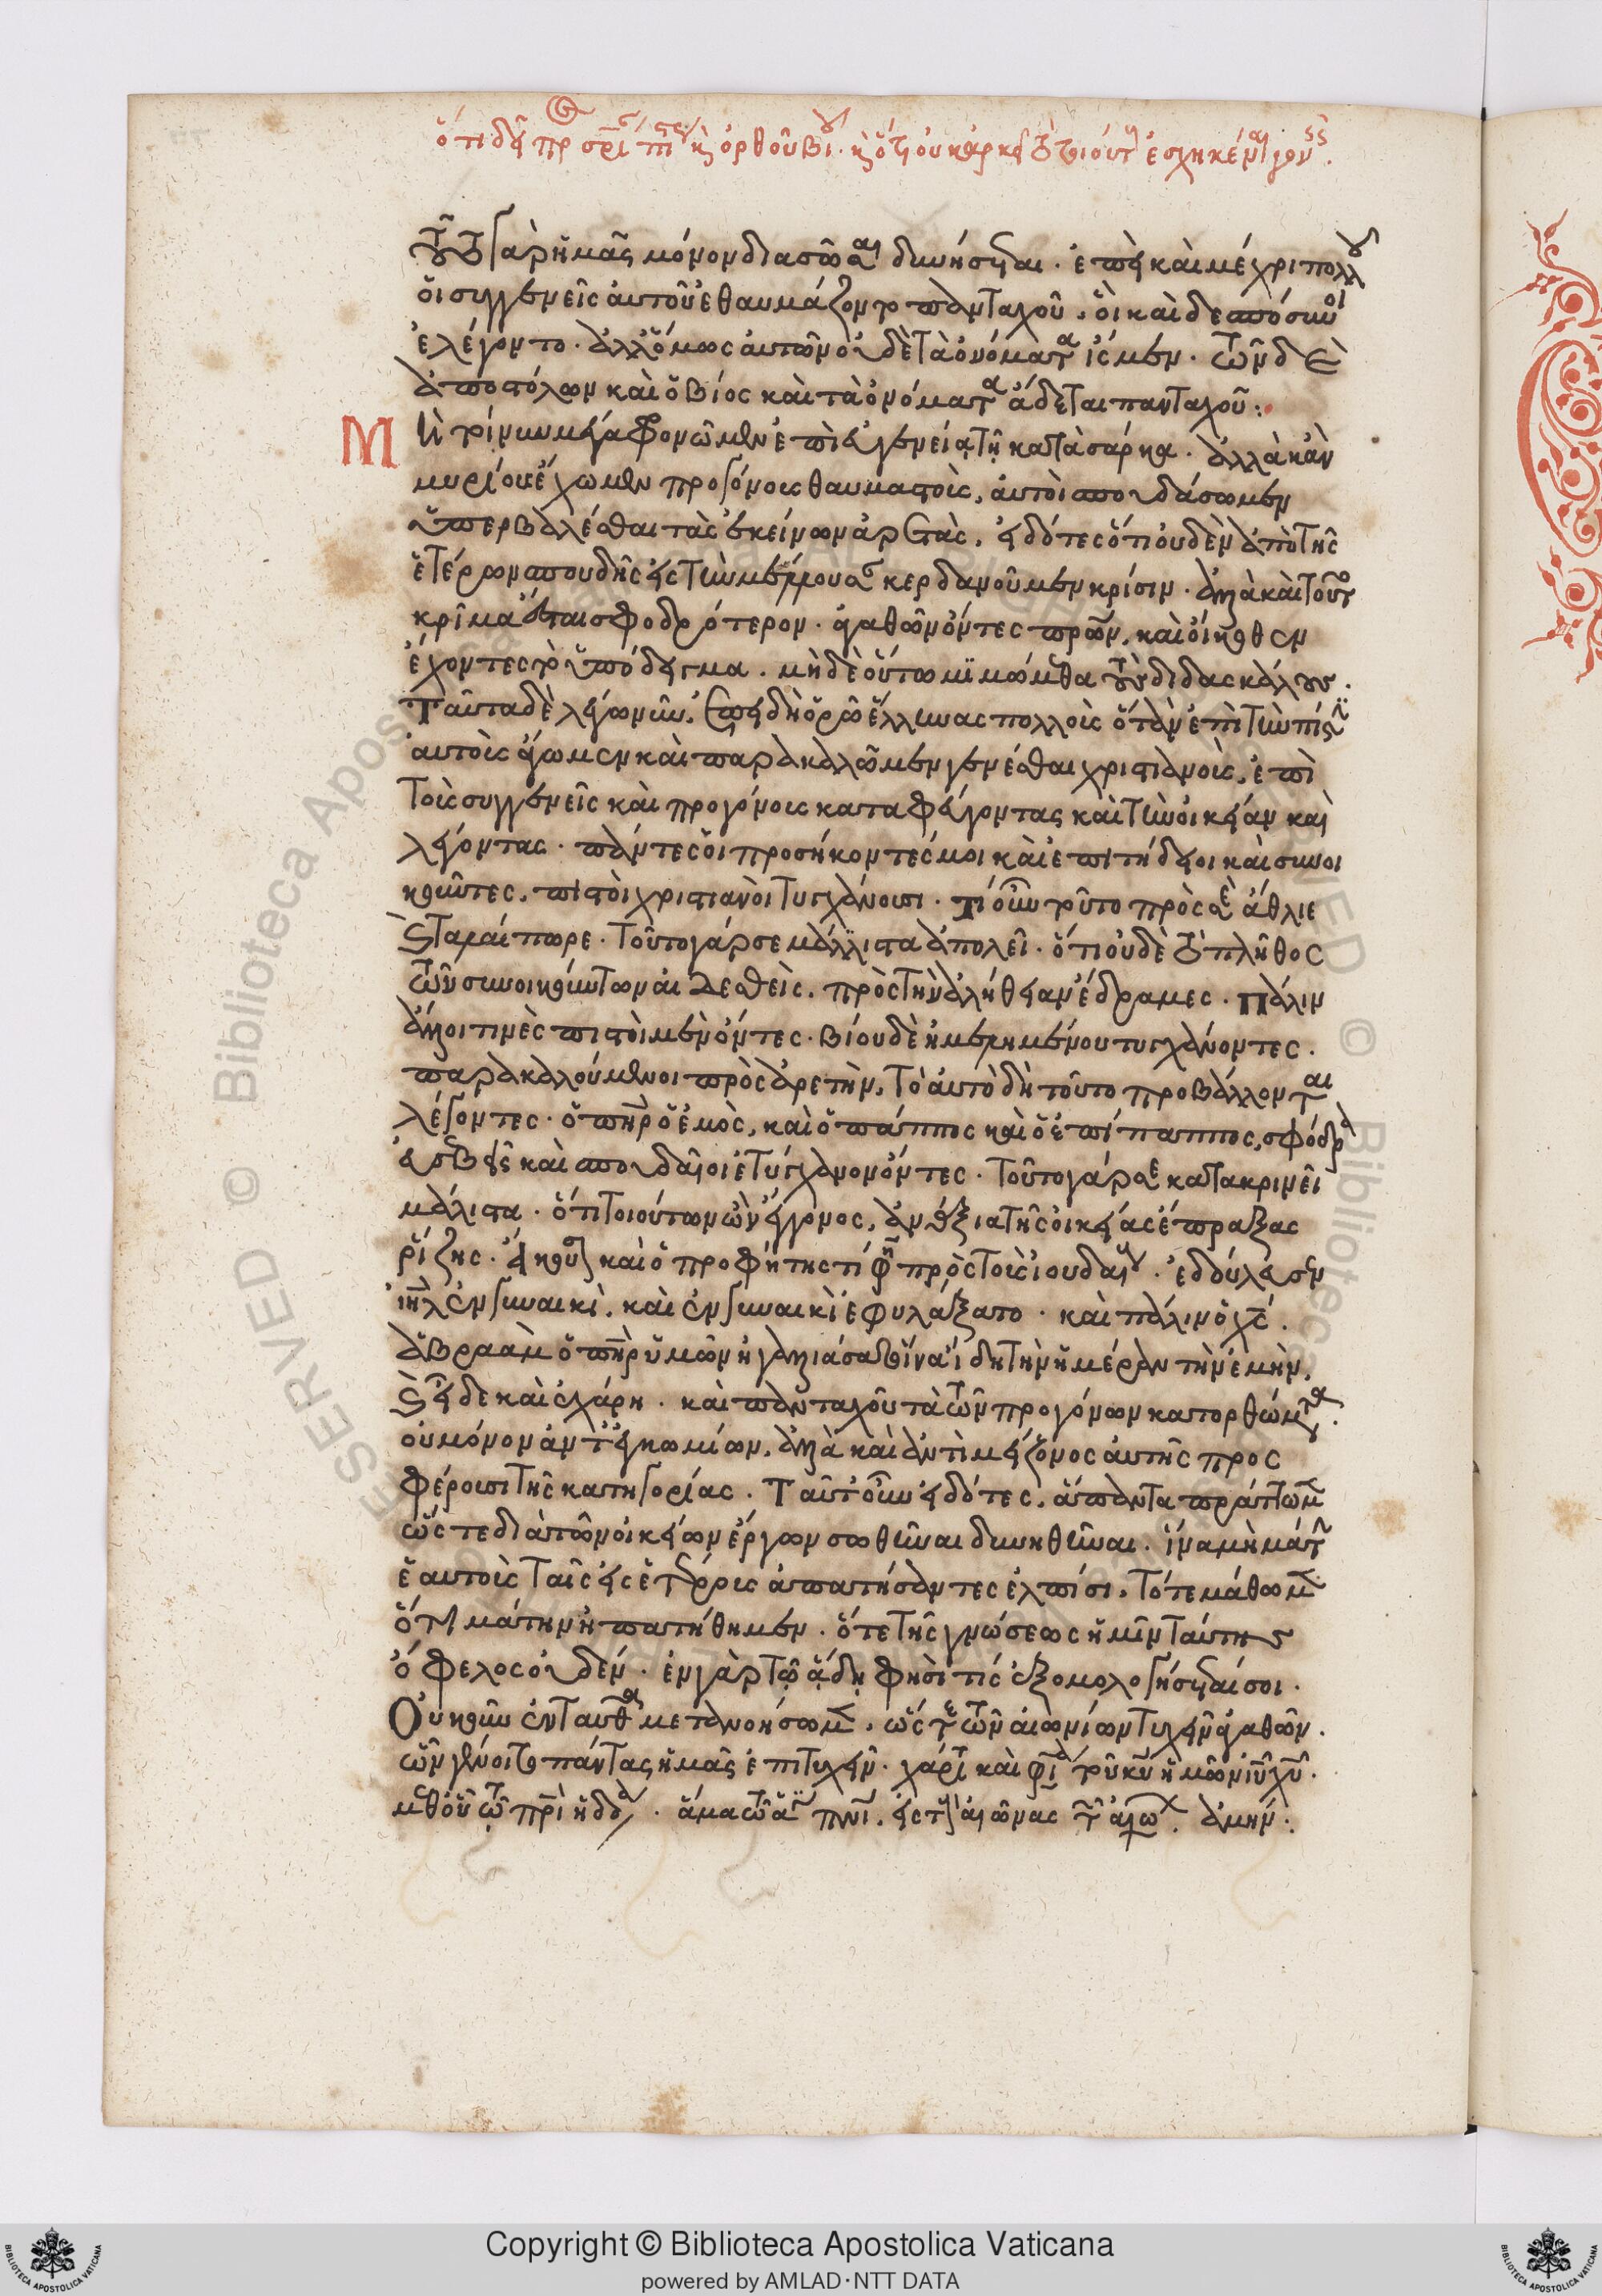 ὅτι δεῖ πρ σρι πι κ ὀρθοῦ βίου· κ ὅτι οὐκ ἀρκεῖ τὸ τοιούτους ἐσχηκέναι γονεῖς.
τοῦτο γὰρ ἡμᾶς μόνον διασῶσαι δυνήσεται· ἐπεὶ καὶ μέχρι πολλοῦ
οἱ συγγενεῖς αὐτοῦ ἐθαυμάζοντο πανταχοῦ. οἱ καὶ δεσπόσυνοι
ἐλέγοντο· ἀλλ' ὅμως αὐτῶν οὐδὲ τὰ ὀνόματα ἴσμεν· τῶν δὲ
ἀποστόλων καὶ ὁ βίος καὶ τὰ ὀνόματα ἄδεται πανταχοῦ:
Μὴ τοίνυν μέγα φρονῶμεν ἐπὶ εὐγενείᾳ τῇ κατὰ σάρκα· ἀλλὰ κἂν
μυρίους ἔχωμεν προγόνους θαυμαστοὺς, αὐτοὶ σπουδάσωμεν
ὑπερβαλέσθαι τὰς ἐκείνων ἀρετὰς. εἰδότες ὅτι οὐδὲν ἀπὸ τῆς
ἑτέρων σπουδῆς εἰς τὴν μέλλουσαν κερδανοῦμεν κρίσιν· ἀλλὰ καὶ τοῦτο
κρῖμα ἔσται σφοδρότερον· ἀγαθῶν ὄντες πρων. καὶ οἴκοθεν
ἔχοντες τὸ ὑπόδειγμα. μηδὲ οὕτω μιμώμεθα τοὺς διδασκάλους.
Ταῦτα δὲ λέγω νῦν. ἐπειδὴ ὁρῶ ἕλληνας πολλοὺς ὅταν ἐπὶ τὴν πίστιν
αὐτοὺς ἄγωμεν καὶ παρακαλῶμεν γενέσθαι χριστιανοὺς, ἐπὶ
τοὺς συγγενεῖς καὶ προγόνους καταφεύγοντας καὶ τὴν οἰκείαν καὶ
λέγοντας· πάντες οἱ προσήκοντές μοι καὶ ἐπιτήδειοι καὶ συνοι
κοῦντες. πιστοὶ χριστιανοὶ τυγχάνουσι. τί οὖν τοῦτο πρὸς σὲ ἄθλιε
καὶ ταλαίπωρε. τοῦτο γάρ σε μάλλιστα ἀπολεῖ. ὅτι οὐδὲ τὸ πλῆθος
τῶν συνοικούντων αἰδεσθεὶς. πρὸς τὴν ἀλήθειαν ἔδραμες. Πάλιν
ἄλλοι τινὲς πιστοὶ μὲν ὄντες. βίου δὲ ἠμελημένου τυγχάνοντες.
παρακαλούμενοι πρὸς ἀρετὴν. τὸ αὐτὸ δὴ τοῦτο προβάλλονται
λέγοντες. ὁ πηρ ὁ ἐμὸς, καὶ ὁ πάππος καὶ ὁ ἐπίπαππος, σφόδρα
εὐσεβεῖς καὶ σπουδαῖοι ἐτύγχανον ὄντες. τοῦτο γάρ σε κατακρινεῖ
μάλιστα. ὅτι τοιούτων ὢν ἔγγονος, ἀνάξια τῆς οἰκείας ἔπραξας
ῥίζης. ἄκουσον καὶ ὁ προφήτης τί φησι πρὸς τοὺς ἰουδαίους. ἐδούλευσεν
ιηλ ἐν γυναικὶ. καὶ ἐν γυναικὶ ἐφυλάξατο. καὶ πάλιν ὁ χς.
ἀβραὰμ ὁ πηρ ὑμῶν ἠγαλλιάσατο ἵνα ἴδῃ τὴν ἡμέραν τὴν ἐμὴν.
καὶ εἶδε καὶ ἐχάρη. καὶ πανταχοῦ τὰ τῶν προγόνων κατορθώματα.
οὐ μόνον ἀντ' ἐγκωμίων. ἀλλὰ καὶ ἀντὶ μείζονος αὐτῆς προς
φέρουσι τῆς κατηγορίας. Ταῦτ' οὖν εἰδότες. ἅπαντα πράττωμεν
ὥστε διὰ τῶν οἰκείων ἔργων σωθῆναι δυνηθῆναι. ἵνα μὴ μάτην
ἑαυτοὺς ταῖς εἰς ἑτέρους ἀπατήσαντες ἐλπίσι. τότε μάθωμεν
ὅτι μάτην ἠπατήθημεν. ὅτε τῆς γνώσεως ἡμῖν ταύτης
ὄφελος οὐδέν. ἐν γὰρ τῷ ᾅδῃ φησὶ τίς ἐξομολογήσεταί σοι.
Οὐκοῦν ἐνταῦθα μετανοήσωμεν. ὥστε τῶν αἰωνίων τυχεῖν ἀγαθῶν.
ὧν γένοιτο πάντας ἡμᾶς ἐπιτυχεῖν. χάριτι καὶ φιλία τοῦ κυ ἡμῶν ιυ χυ.
μεθ' οὗ τῷ πρι ἡ δόξα. ἅμα τῷ ἁγίῳ πνι. εἰς τοὺς αἰῶνας τῶν αἰώνων. ἀμήν.
Copyright © Biblioteca Apostolica Vaticana
powered by AMLAD·NTT DATA